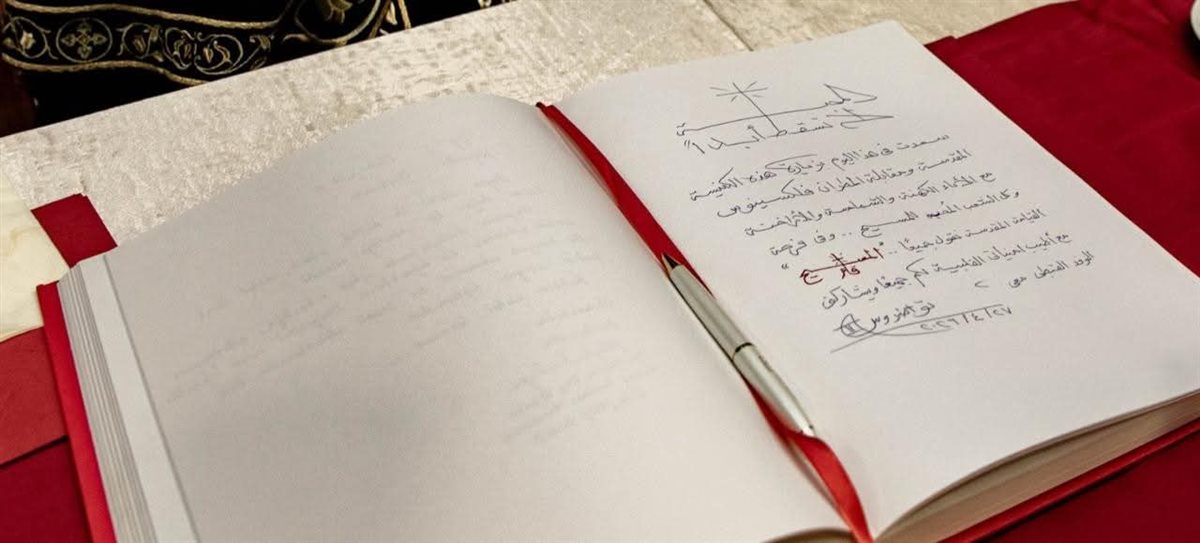 المحبــــة
لا تسقط أبدًا"
سعدت في هذا اليوم بزيارة هذه الكنيسة
المقدسة ومقابلة المطران فلكسينوس
مع الآباء الكهنة والشمامسة والأراخنة
وكل الشعب المحب للمسيح .. وفى فرحة
القيامة المقدسة نقول جميعًا .. "المسيح
قام"
مع أطيب أمنياتى القلبية لكم جميعًا ويشاركنى
الوفد القبطى معى
تواضروس
٢٠٢٦/٤/٢٧